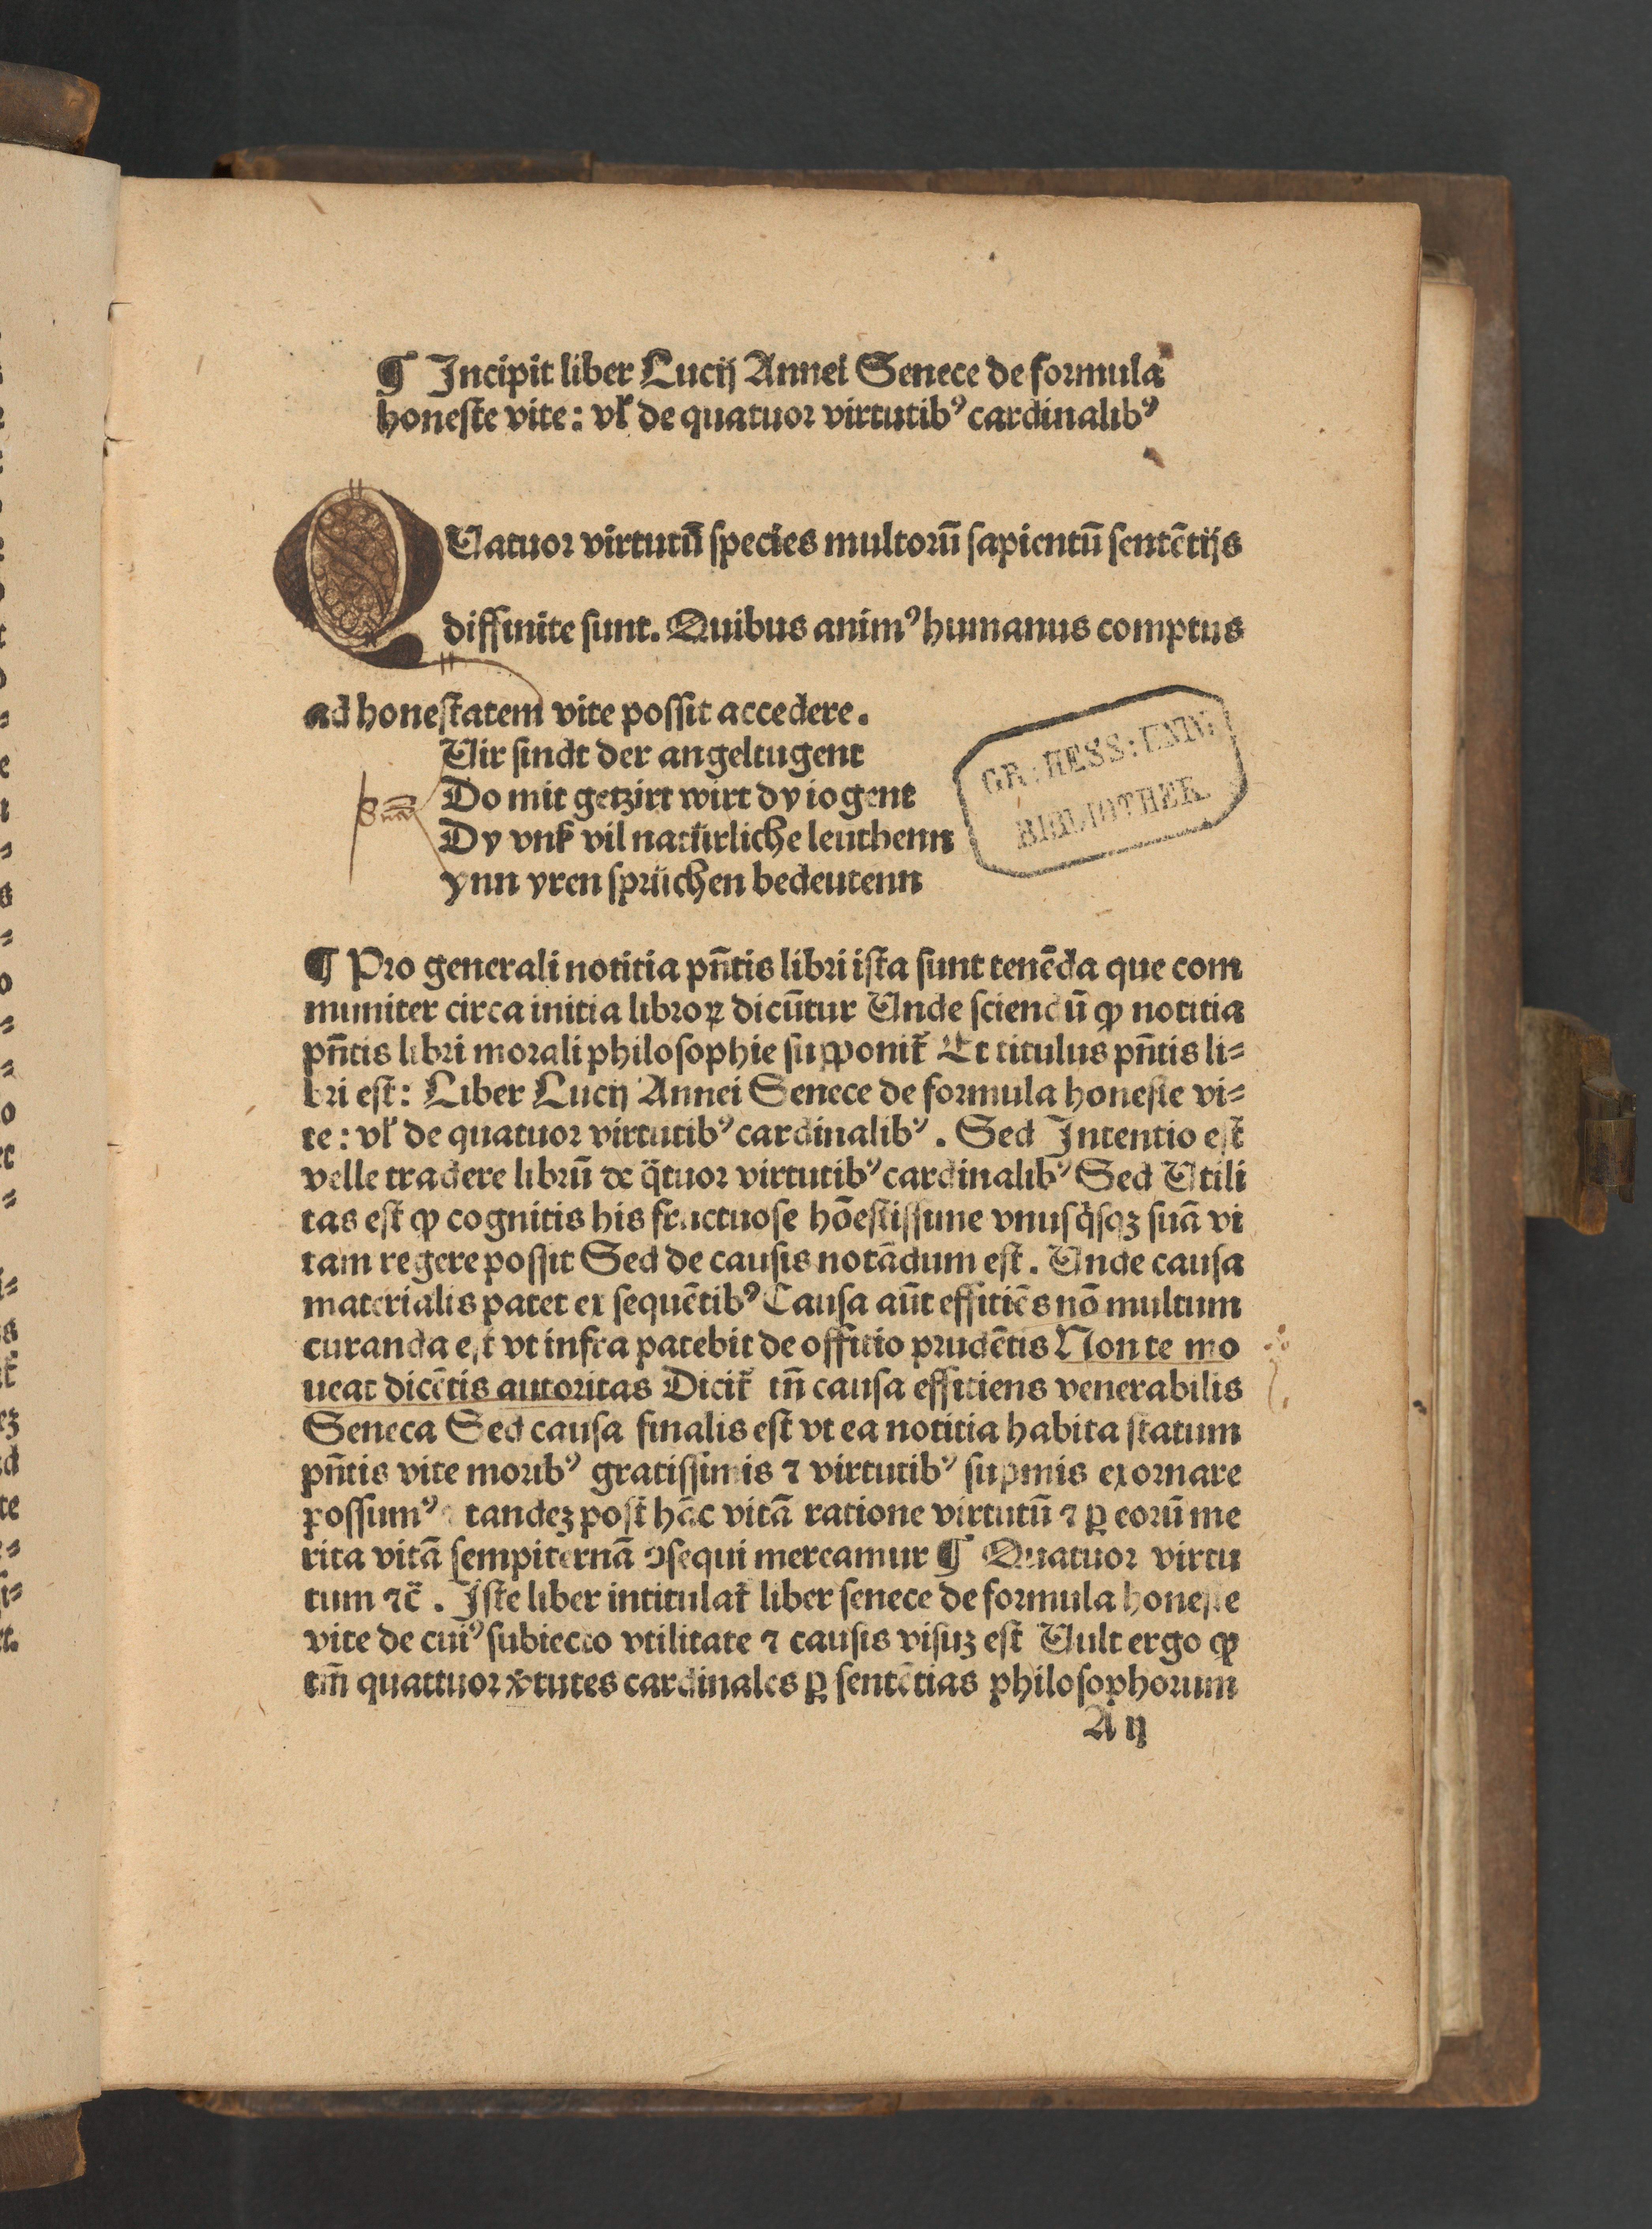 ¶ Incipit liber Lucij Annei Senece de formula
honeste vite: vł de quatuor virtutibꝰ cardinalibꝰ
QUatuor virtutū species multorū sapientū sentētijs
diffinite sunt. Quibus animꝰ humanus comptus
ad honestatem vite possit accedere.
Vir sindt der angeltugent
Do mit getzirt wirt dy iogent
Dy vnß vil natürliche leuthenn
ynn yren sprüchen bedeutenn
GR: HESS: UNIV.
BIBLIOTHEK.
¶ Pro generali notitia pn̄tis libri ista sunt tenēda que com
muniter circa initia libroꝝ dicūtur Unde sciendū ꝙ notitia
pn̄tis libri morali philosophie supponit̃ Et titulus pn̄tis li=
bri est: Liber Lucij Annei Senece de formula honeste vi=
te: vł de quatuor virtutibꝰ cardinalibꝰ. Sed Intentio est
velle tradere librū de q̈tuor virtutibꝰ cardinalibꝰ Sed Utili
tas est ꝙ cognitis his fructuose hōestissime vnusq̇sqꝫ suā vi
tam regere possit Sed de causis notādum est. Unde causa
materialis patet ex sequētibꝰ Causa aūt effitiēs nō multum
curanda est vt infra patebit de offitio prudētis Non te mo
ueat dicētis autoritas Dicit̃ tn̄ causa effitiens venerabilis
Seneca Sed causa finalis est vt ea notitia habita statum
pn̄tis vite moribꝰ gratissimis ⁊ virtutibꝰ supmis exornare
possumꝰ tandeꝫ post hāc vitā ratione virtutū ⁊ ꝑ eorū me
rita vitā sempiternā ↄsequi mereamur ¶ Quatuor virtu
tum ⁊c̄. Iste liber intitulat̃ liber senece de formula honeste
vite de cuiꝰ subiecto vtilitate ⁊ causis visuꝫ est Vult ergo ꝙ
tm̄ quattuor v̓tutes cardinales ꝑ sentētias philosophorum
A ij